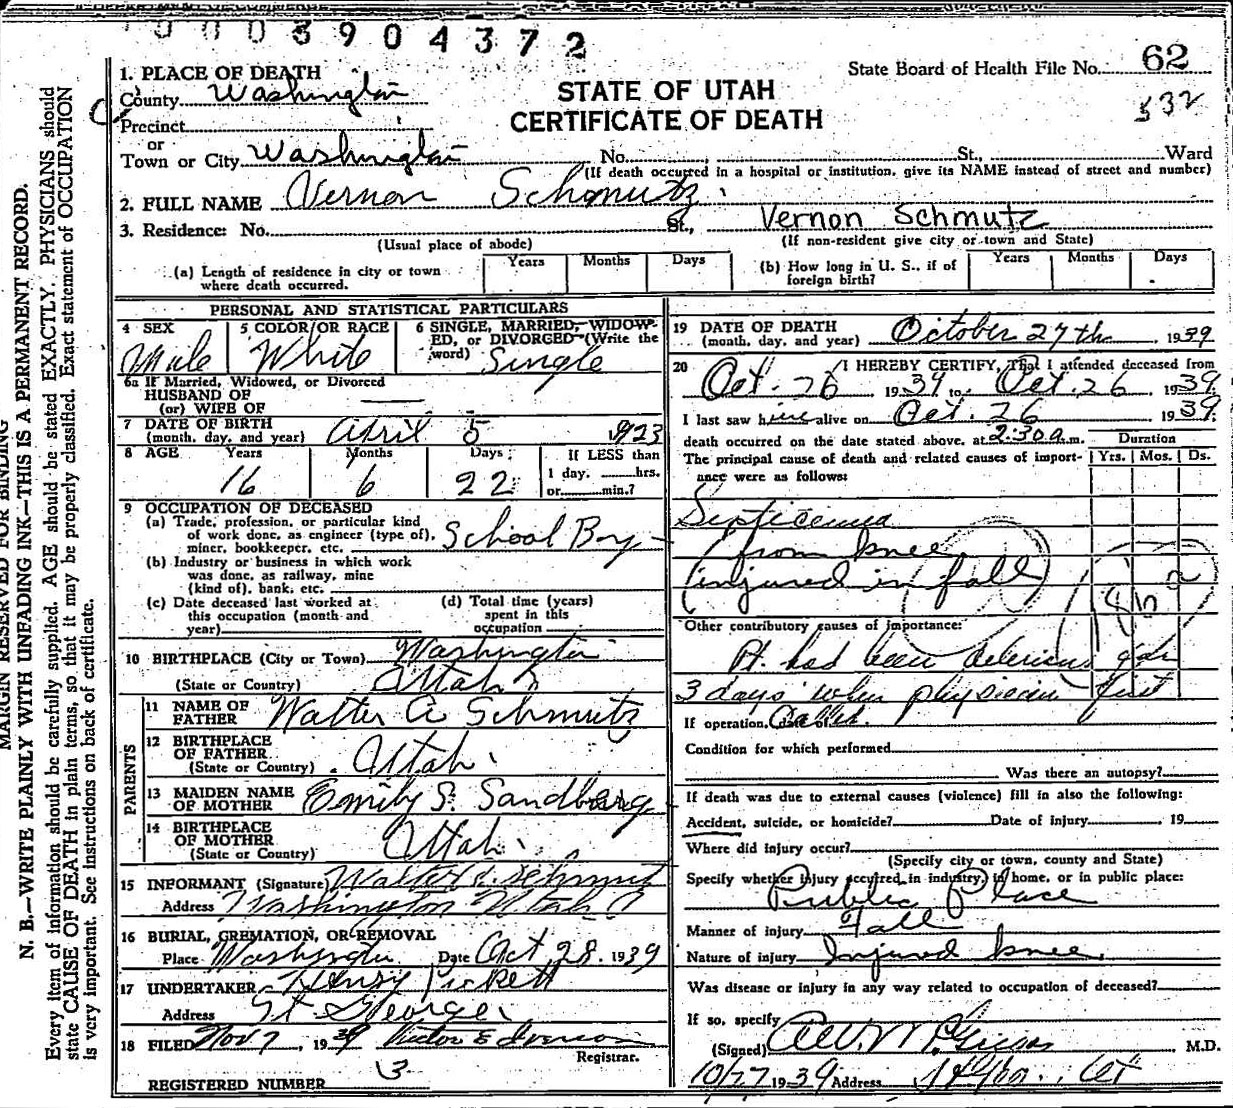 0003904372
State Board of Health File No. 62
532
STATE OF UTAH
CERTIFICATE OF DEATH
1. PLACE OF DEATH
County Washington
Precinct
or
Town or City Washington No. St., Ward
(If death occurred in a hospital or institution, give its NAME instead of street and number)
2. FULL NAME Vernon Schmutz
3. Residence: No. St., Vernon Schmutz
(Usual place of abode) (If non-resident give city or town and State)
(a) Length of residence in city or town where death occurred. Years Months Days
(b) How long in U. S., if of foreign birth? Years Months Days
PERSONAL AND STATISTICAL PARTICULARS
4 SEX Male
5 COLOR OR RACE White
6 SINGLE, MARRIED, WIDOWED, or DIVORCED (Write the word) Single
6a If Married, Widowed, or Divorced
HUSBAND OF
(or) WIFE OF
7 DATE OF BIRTH
(month, day, and year) April 5 1923
8 AGE Years Months Days If LESS than
16 6 22 1 day, hrs.
or min.?
9 OCCUPATION OF DECEASED
(a) Trade, profession, or particular kind
of work done, as engineer (type of),
miner, bookkeeper, etc. School Boy
(b) Industry or business in which work
was done, as railway, mine
(kind of), bank, etc.
(c) Date deceased last worked at
this occupation (month and
year)
(d) Total time (years)
spent in this
occupation
10 BIRTHPLACE (City or Town) Washington
(State or Country) Utah
PARENTS
11 NAME OF
FATHER Walter A Schmutz
12 BIRTHPLACE
OF FATHER
(State or Country) Utah
13 MAIDEN NAME
OF MOTHER Emily S. Sandberg
14 BIRTHPLACE
OF MOTHER
(State or Country) Utah
15 INFORMANT (Signature) Walter Schmutz
Address Washington Utah
16 BURIAL, CREMATION, OR REMOVAL
Place Washington Date Oct 28. 1939
17 UNDERTAKER Henry Pickett
Address St George
18 FILED Nov 7, 1939 Victor E Iverson
Registrar.
REGISTERED NUMBER 3
19 DATE OF DEATH
(month, day, and year) October 27th 1939
20 I HEREBY CERTIFY, That I attended deceased from
Oct. 26 1939 to Oct. 26 1939
I last saw him alive on Oct. 26 1939
death occurred on the date stated above, at 2:30 a.m.
Duration
The principal cause of death and related causes of importance were as follows: Yrs. Mos. Ds.
Septicemia
from knee
(injured in fall)
Other contributory causes of importance:
Pt. had been delerious for
3 days when physician first
called.
If operation,
Condition for which performed
Was there an autopsy?
If death was due to external causes (violence) fill in also the following:
Accident, suicide, or homicide? Date of injury 19
Where did injury occur?
(Specify city or town, county and State)
Specify whether injury occurred in industry, in home, or in public place:
Public Place
Manner of injury Fall
Nature of injury Injured knee
Was disease or injury in any way related to occupation of deceased?
If so, specify
(Signed) M.D.
10/27 1939 Address
MARGIN RESERVED FOR BINDING
N. B.—WRITE PLAINLY WITH UNFADING INK—THIS IS A PERMANENT RECORD.
Every item of information should be carefully supplied. AGE should be stated EXACTLY. PHYSICIANS should
state CAUSE OF DEATH in plain terms, so that it may be properly classified. Exact statement of OCCUPATION
is very important. See instructions on back of certificate.